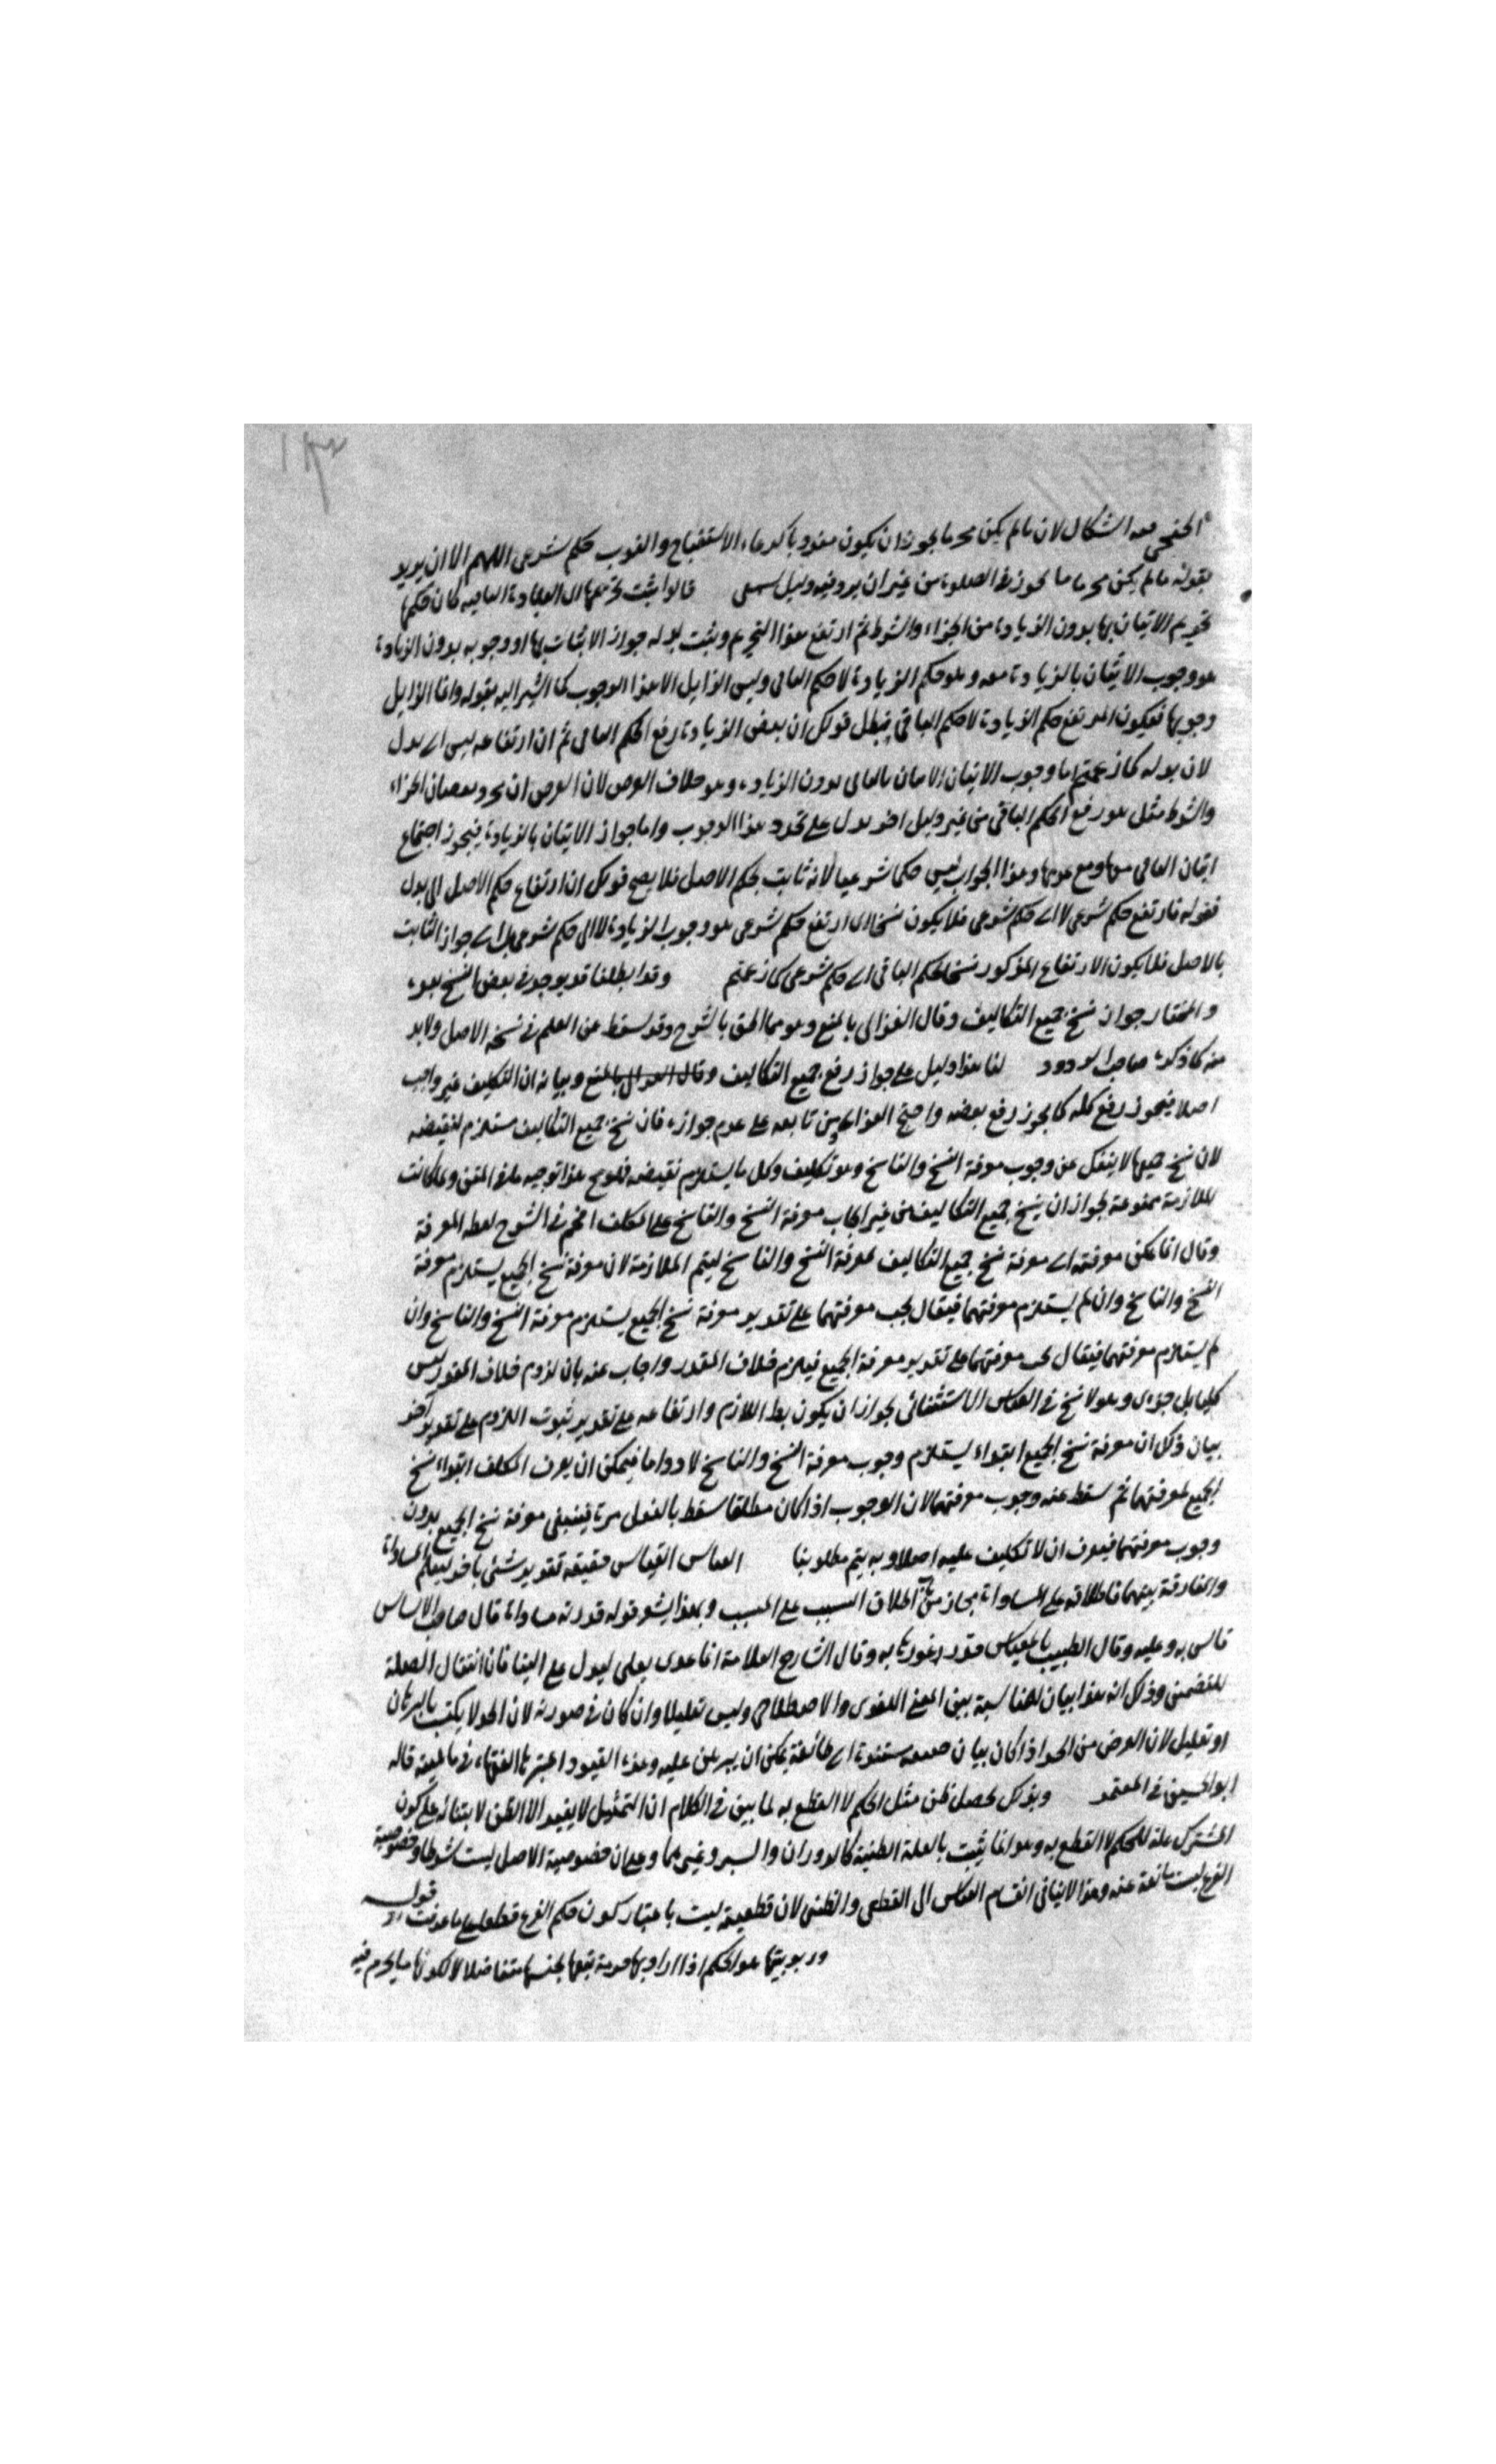 ١٣
الحنفي معه اشكال لان ما لم يكن محرما يجوز ان يكون مندوبا كدعاء الاستفتاح والندب حكم شرعى اللهم الا ان يريد
بقوله ما لم يكن محرما ما يجوز في الصلوة من غير ان يرد فيه دليل قالوا ثبت تحريمها ان العبادة الباقيه كان حكمها
تحريم الاتيان بها بدون الزيادة من الجزء والشرط ثم ارتفع هذا التحريم وثبت بدله جواز الاتيان بها او وجوبه بدون الزيادة
هو وجوب الاتيان بالزيادة معه وهو حكم الزيادة لا حكم الباقى وليس الزايل الا هذا الوجوب كما اشير اليه بقوله وانما الزايل
وجوبها فيكون المرتفع حكم الزيادة لا حكم الباقى فبطل قولكم ان بعض الزيادة رفع الحكم الباقى ثم ان ارتفاعه ليس الى بدل
لان بدله كما زعمتم اما وجوب الاتيان بالباقى بدون الزيادة وهو خلاف الفرض لان الفرض ان مجرد نقصان الجزاء
والشرط مثل هو رفع الحكم الباقى من غير دليل اخر يدل على تجدد هذا الوجوب واما جواز الاتيان بالزيادة فيجوز اجتماع
اتيان الباقى معها ومع عدمها وهذا الجواب ليس حكما شرعيا لانه ثابت بحكم الاصل فلا يصح قولكم ان ارتفاع حكم الاصل الى بدل
فقوله فارتفع حكم شرعى لا الى حكم شرعى فلا يكون نسخا اى ارتفع حكم شرعى هو وجوب الزيادة لا الى حكم شرعى بل الى جواز الثابت
بالاصل فلا يكون الارتفاع المذكور نسخا لحكم الباقى الى حكم شرعى كما زعمتم وقد ابطلنا قد يوجد في بعض النسخ بعده
والمختار جواز نسخ جميع التكاليف وقال الغزالى بالمنع وهو مما الحق بالشرح وقد سقط عن العلم في نسخة الاصل ولا بد
منه كما ذكره صاحب الردود لنا هذا دليل على جواز رفع جميع التكاليف وقال الغزالى بالمنع وبيانه ان التكليف غير واجب
اصلا فيجوز رفع كله كما يجوز رفع بعضه واحتج الغزالى ومن تابعه على عدم جوازه فان نسخ جميع التكاليف مستلزم لنقيضه
لان نسخ جميعها لا ينفك عن وجوب معرفة النسخ والناسخ وهو تكليف وكل ما يستلزم نقيضه فهو مح هذا توجيه ما في المتن ولما كانت
الملازمة ممنوعة لجواز ان ينسخ جميع التكاليف من غير ايجاب معرفة النسخ والناسخ على المكلف اقحم في الشرح لفظ المعرفة
وقال انما يمكن معرفته اى معرفة نسخ جميع التكاليف بمعرفة النسخ والناسخ ليتم الملازمة لان معرفة نسخ الجميع يستلزم معرفة
النسخ والناسخ وان لم يستلزم معرفتهما فيقال يجب معرفتهما على تقدير معرفة نسخ الجميع يستلزم معرفة النسخ والناسخ وان
لم يستلزم معرفتهما فيقال يجب معرفتهما على تقدير معرفة الجميع فيلزم خلاف المقدر واجاب عنه بان لزوم خلاف المقدر ليس
كليا بل جزءى وهو لا نسخ في القياس الاستثنائى لجواز ان يكون بط اللازم وارتفاعه على تقدير ثبوت اللزوم على تقدير آخر
بيان ذلك ان معرفة نسخ الجميع ابتداء يستلزم وجوب معرفة النسخ والناسخ لا دواما فيمكن ان يعرف المكلف ابتداء نسخ
الجميع لمعرفتهما ثم سقط عنه وجوب معرفتهما لان الوجوب اذا كان مطلقا سقط بالفعل مرة فينبغى معرفة نسخ الجميع بدون
وجوب معرفتهما فيعرف ان لا تكليف عليه اصلا وبه يتم مطلوبنا القياس القياس حقيقة تقدير شئ باخر ليعلم المساواة
والمفارقة بينهما فاطلاقه على المساواة مجاز من باب اطلاق السبب على المسبب وبهذا يشعر قوله قدرته مساواة قال صاحب الاساس
قاس به وعليه وقال الطبيب بالمقياس قدر غورها به وقال الشارح العلامة انما عدى بعلى ليدل على البنا فان انتقال الصلة
للتضمين وذلك انه هذا بيان للمناسبة بين المعنى اللغوى والاصطلاحى وليس تعليلا وان كان في صورته لان الحد لا يكتب بالبرهان
او تعليل لان الغرض من الحد اذا كان بيان اى طائفة يمكن ان يبرهن عليه وهذه القيود اعتبرها الفقهاء في ماهيته قاله
ابو الحسين في المعتمد وبذلك يحصل ظن مثل الحكم لا القطع به لما بين في الكلام ان التمثيل لا يفيد الا الظن لابتنائه على كون
المشترك علة للحكم لا القطع به وهو انما يثبت بالعلة الظنية كالدوران والسبر وغيرهما وعلى ان خصوصية الاصل ليست شرطا وخصوصية
الفرع ليست مانعة عنه وهذا لا ينافى انقسام القياس الى القطعى والظنى لان قطعيته ليست باعتبار كون حكم الفرع قطعيا على ما عرفت قوله
وربويتها هو الحكم اذا اراد بها حرمة بيعها بجنسها متفاضلا لا لكونها مما يحرم فيه